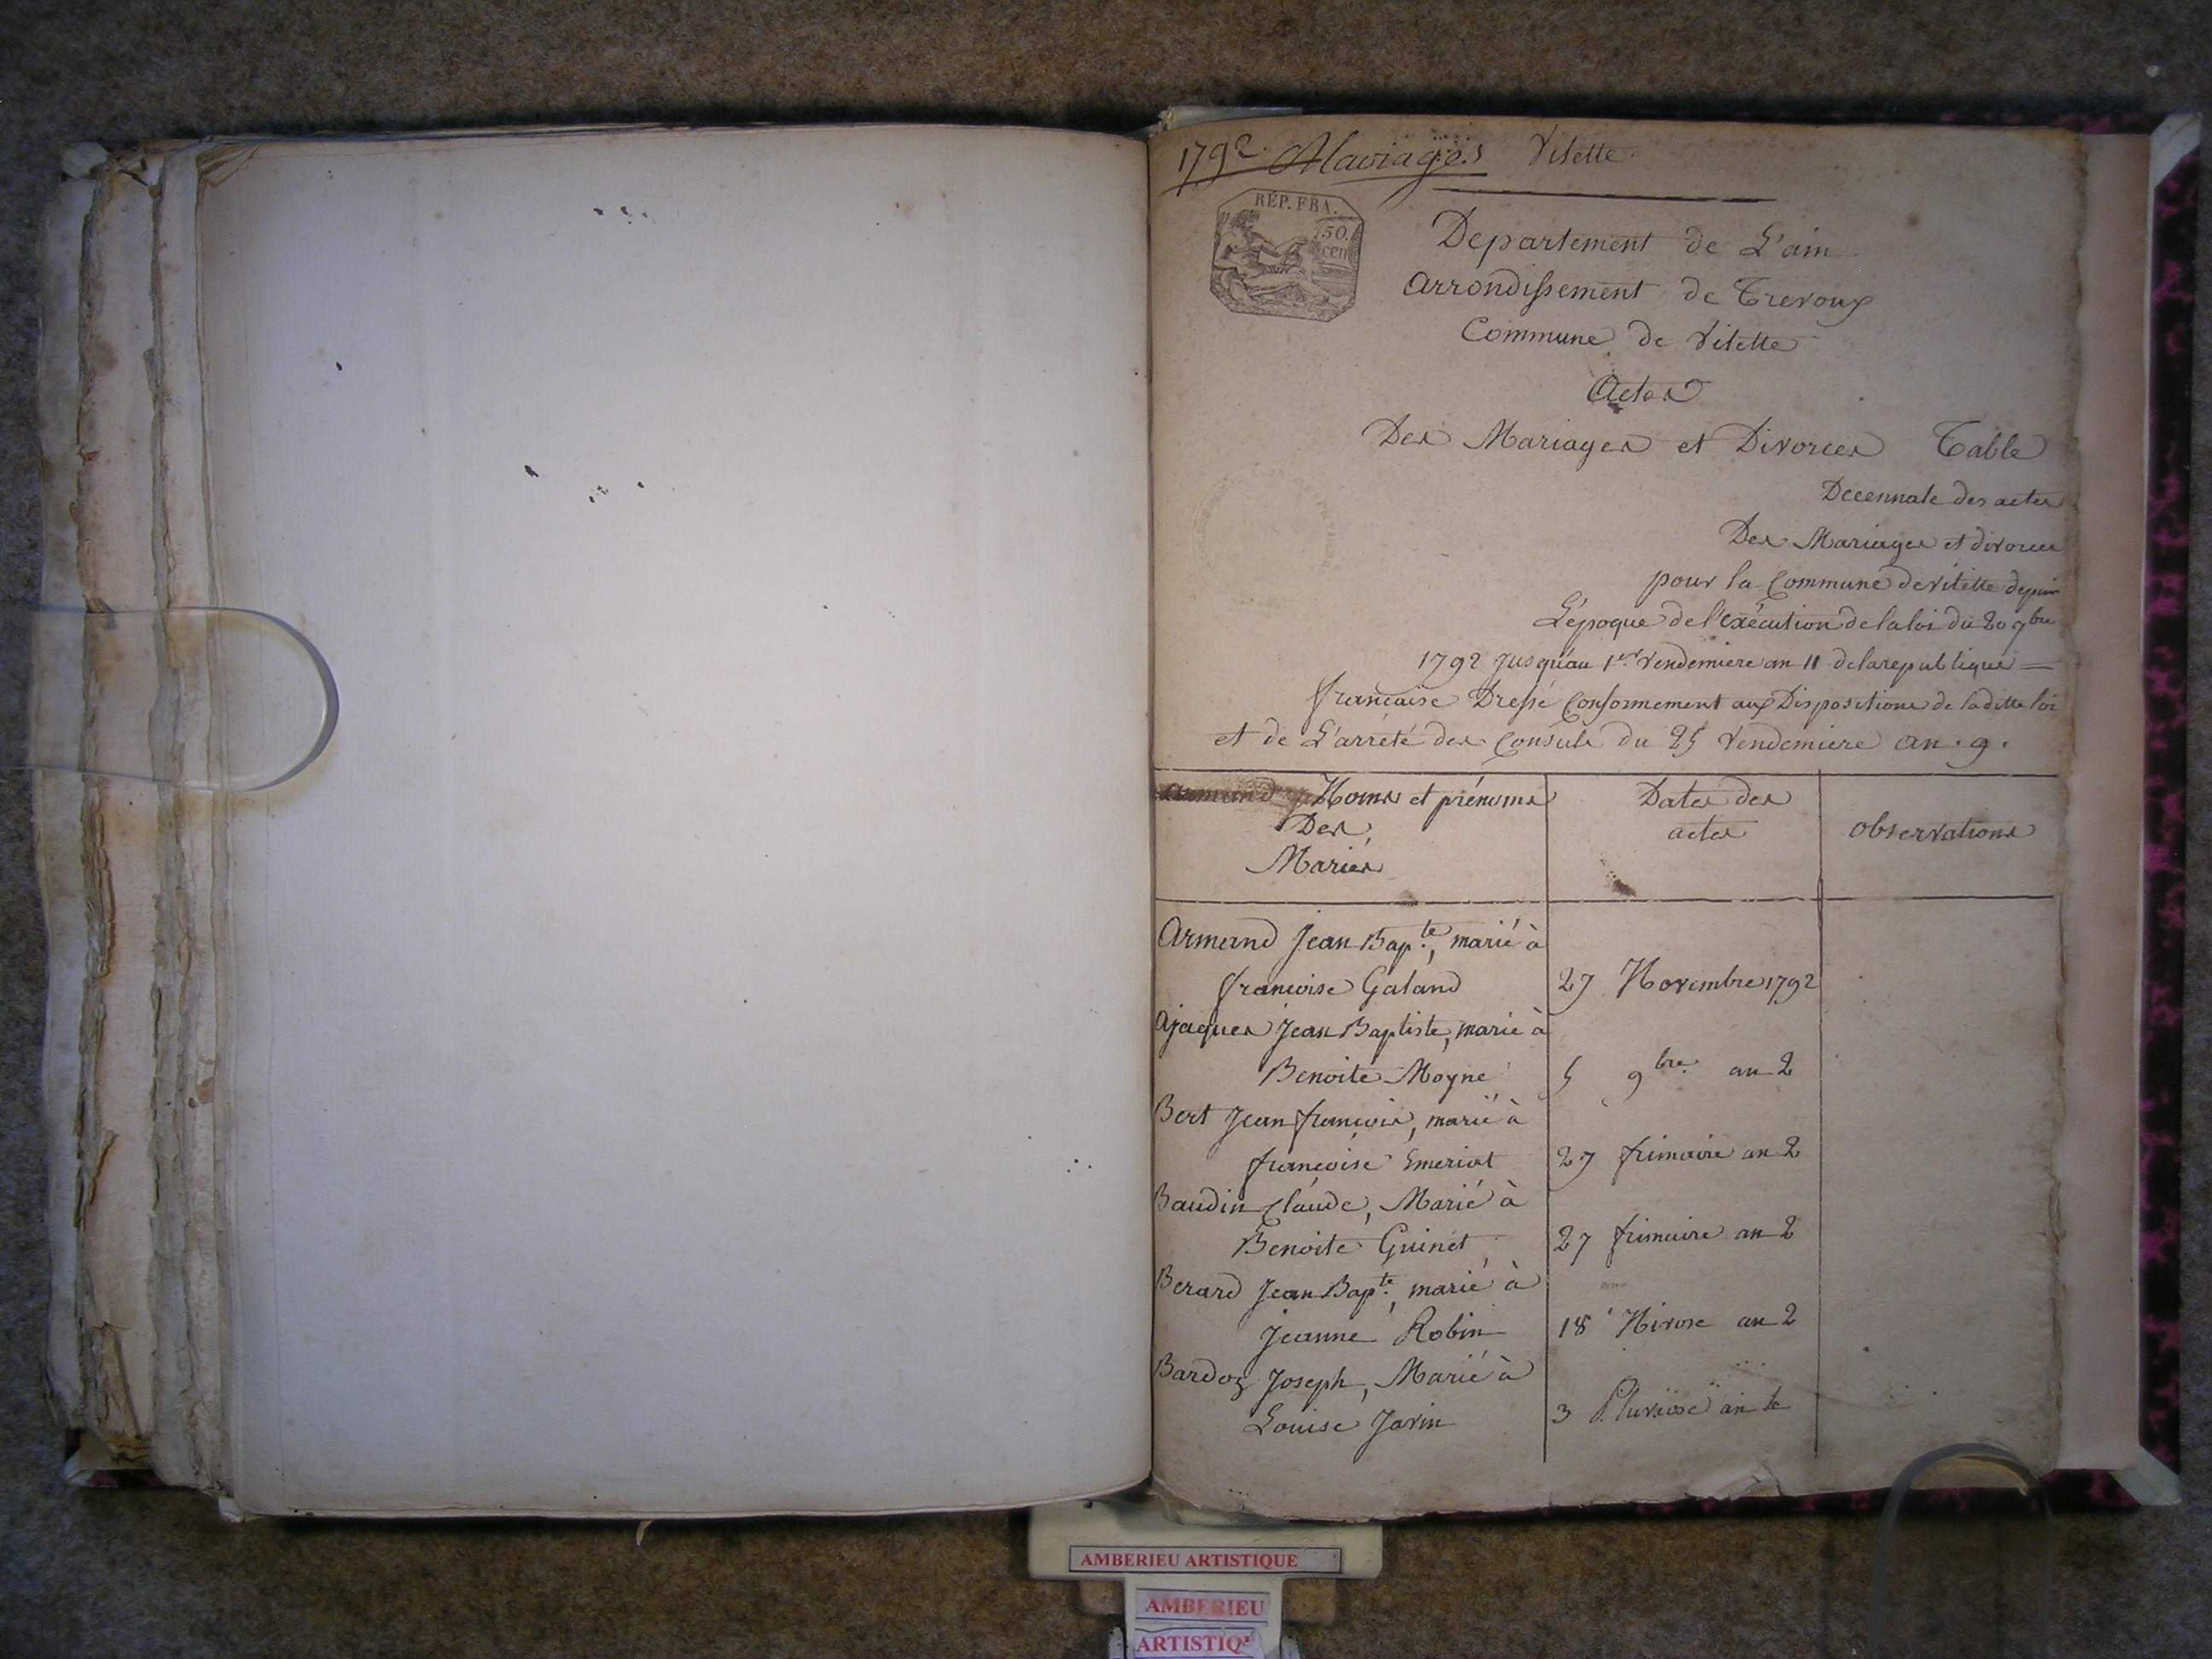 1792. Mariages Vilette
RÉP. FRA.
50.
cen
Departement de L'ain
arrondissement de Trevoux
Commune de Vilette
Actes
Des Mariages et Divorces Table
Decennale des actes
Des Mariages et divorces
pour la Commune de Vilette depuis
L'époque de l'exécution de la loi du 20 9bre
1792 jusqu'au 1er Vendemiere an 11 de la republique =
française Dressé Conformement aux Dispositions de la ditte loi
et de L'arrêté des Consuls du 25 Vendemiere an . 9 .
Noms et prénoms
Des
Mariés
Dates des
actes
observations
Armand Jean Bapte, marié à
francoise Galand 27 Novembre 1792
Ajaques Jean Baptiste, marié à
Benoite Moyne 5 9bre an 2
Bert Jean françois, marié à
françoise Emeriat 27 frimaire an 2
Baudin Claude, Marié à
Benoite Guinet 27 frimaire an 2
Berard Jean Bapte, marié à
Jeanne Robin 18 Nivose an 2
Bardoz Joseph, Marié à
Louise Javin 3 Pluviose an
AMBERIEU ARTISTIQUE
AMBERIEU
ARTISTIQ